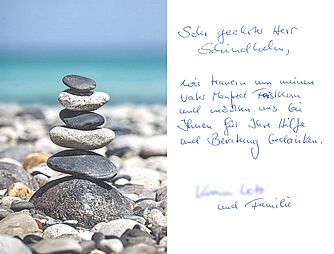 Sehr geehrter Herr
Schindhelm,
wir trauern um meinen
Vater Manfred
und möchten uns bei
Ihnen für Ihre Hilfe
und Beratung bedanken.
und Familie